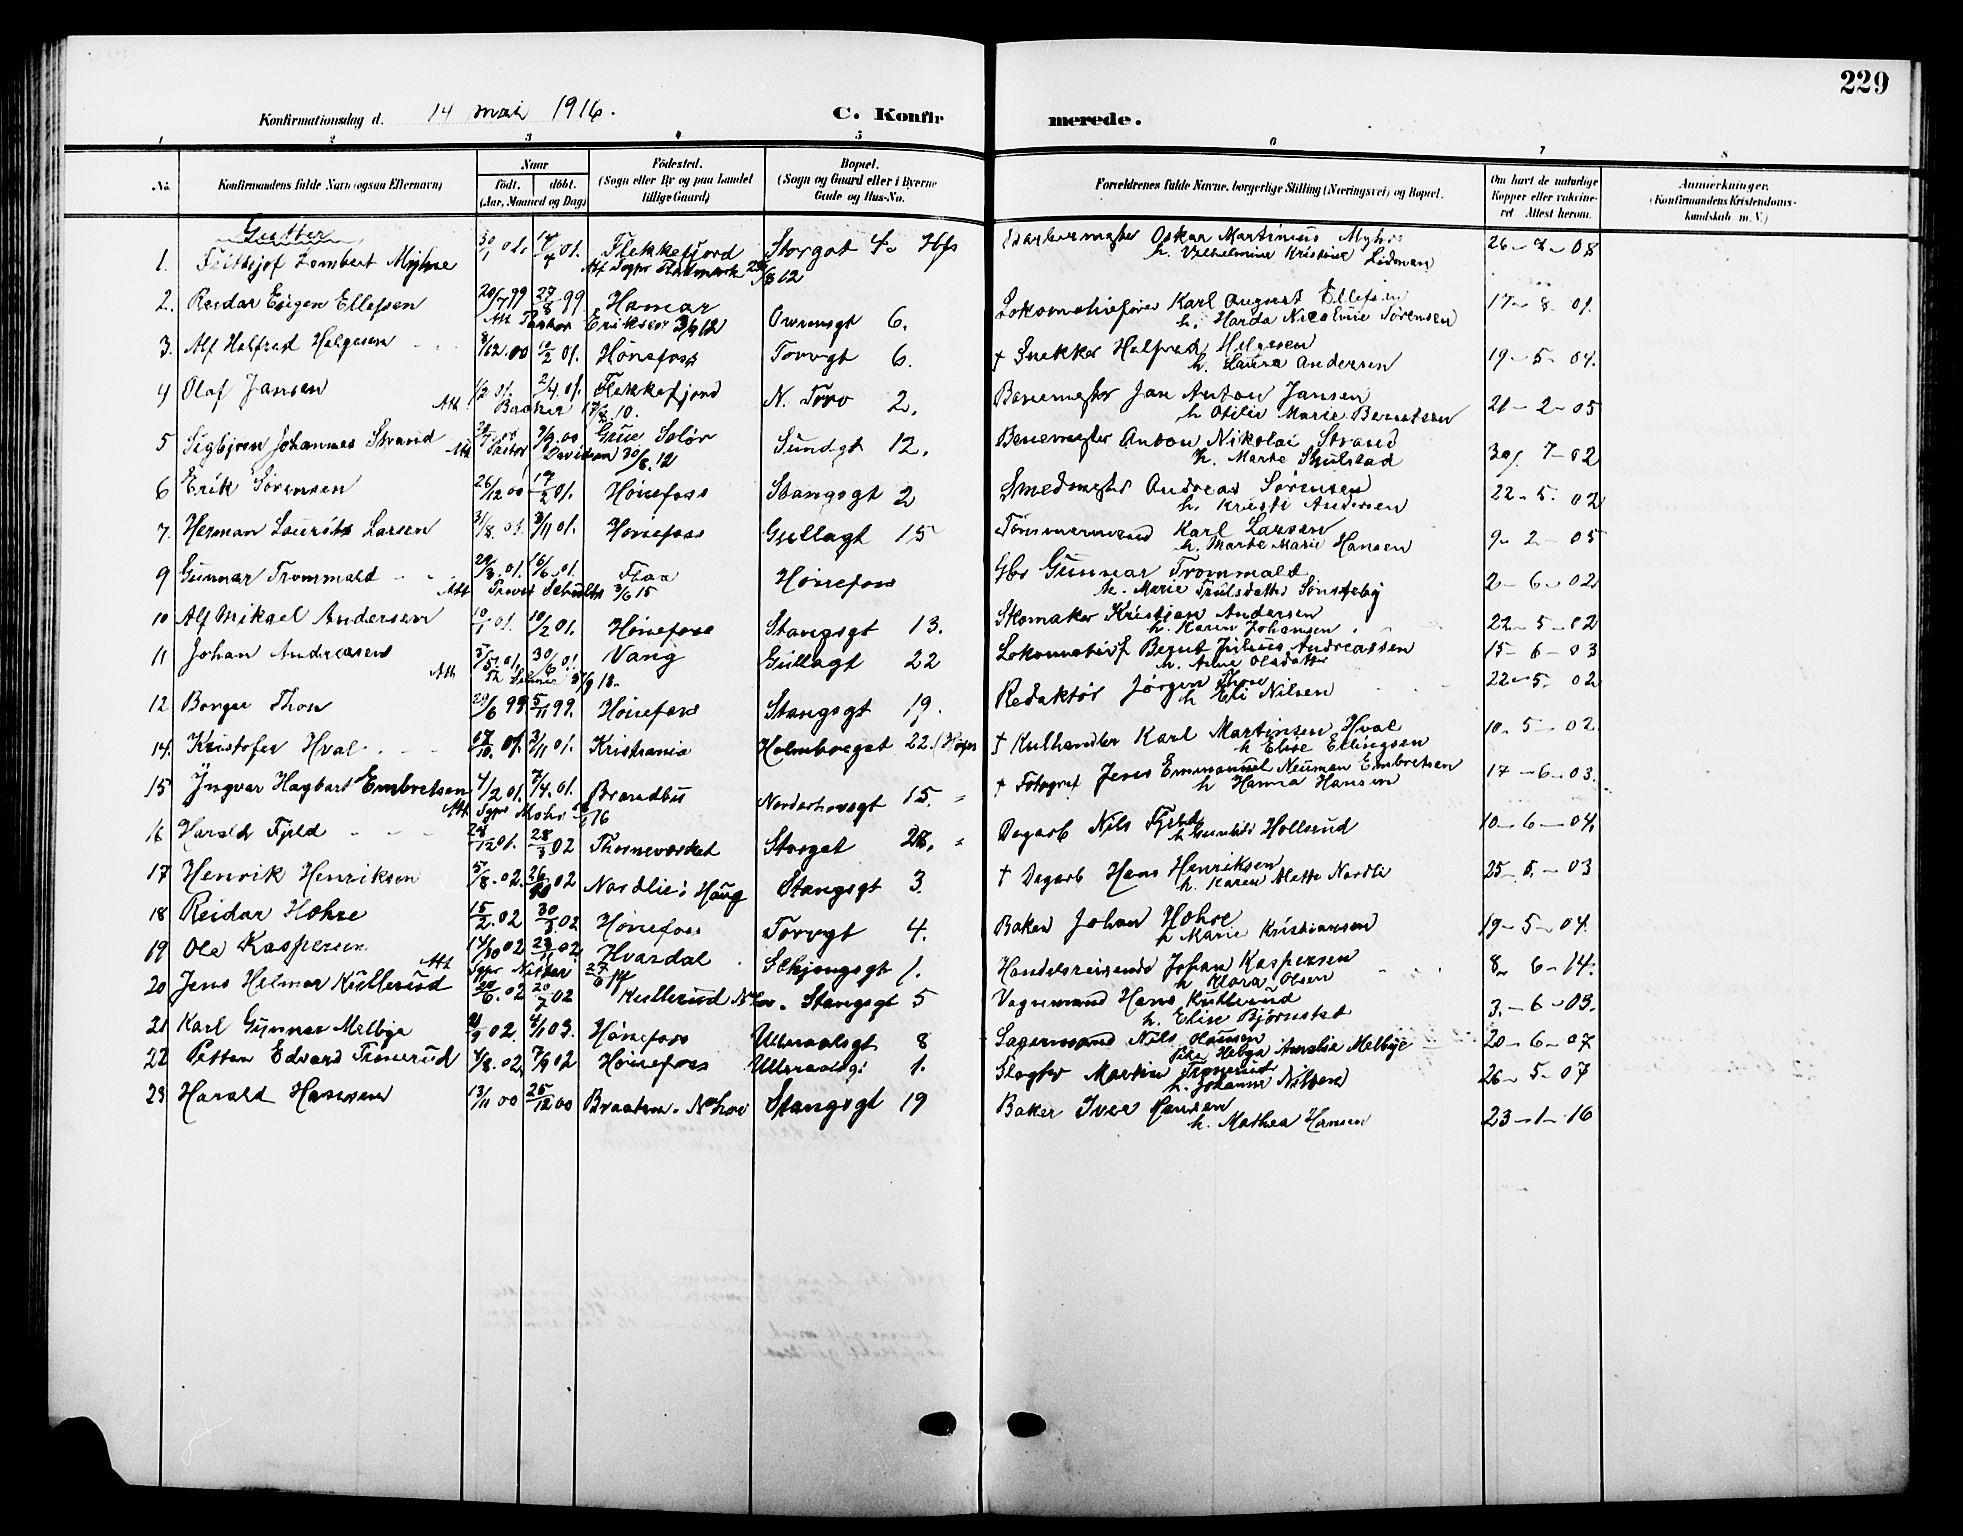 229
Konfirmationsdag d. 14 mai 1916. C. Konfirmerede.
1 2 3 4 5 6 7 8
No. Konfirmandens fulde Navn (ogsaa Efternavn) Naar født. døbt. (Aar, Maaned og Dag) Fødested. (Sogn eller By og paa Landet tillige Gaard) Bopæl. (Sogn og Gaard eller i Byerne Gade og Hus-No. Forældrenes fulde Navne, borgerlige Stilling (Næringsvei) og Bopæl. Om havt de naturlige Kopper eller vakcineret Attest herom. Anmærkninger. (Konfirmandens Kristendomskundskab m. V.)
Gutter
1. Frithjof Lambert Myhre 30/1 01. 14/4 01. Flekkefjord Storgat 4. Hfs Oskar Martinius Myhre 26-7-08
h. Vilhelmine Kristine Lidman
2. Reidar Eugen Ellefsen 20/7 99 27/8 99 Hamar Owrensgt 6. Lokomotivfører Karl August Ellefsen 17-8-01.
Att Pastor Eriksen 3/9 12 h. Harda Nicoline Sørensen
3. Alf Halfred Helgesen 8/12 00 10/2 01. Hønefoss Torvgt 6. † Snekker Halfred Helgesen 19-5-04.
h. Laura Andersen
4 Olaf Jansen 1/2 01. 2/4 01. Flekkefjord N. Torv 2. Banemester Jan Anton Jansen 21-2-05
h Otilie Marie Berntsen
5 Sigbjørn Johannes Strand 9/9 00 Grue Solør Sundgt 12. Banemester Anton Nikolai Strand 30/ 7-02
Att Pastor Davidsen 30/8. 12 h. Marte Skulstad
6 Erik Sørensen 26/12 00 17/2 01. Hønefoss Stangsgt 2 Smedmester Andreas Sørensen 22-5-02
h. Kristi Andersen
7. Herman Laurits Larsen 31/8. 01. 3/11 01. Hønefoss Gullagt 15 Tømmermand Karl Larsen 9-2-05
h. Marte Marie Hansen
9 Gunnar Trommald 29/3. 01. 16/6. 01. Flaa Hønefoss Gbr Gunnar Trommald 2-6-02
Att Provst Schults 3/6 15 h. Marie Trulsdatter Sønsteby
10 Alf Mikael Andersen 10/1 01. 10/2 01. Hønefoss Stangsgt 13. Skomaker Kristian Andersen 22-5-02
h. Karen Johansen
11 Johan Andreasen 5/5 01. 30/6 01. Vang Gullagt 22 Lokomotivf. Bernt Julius Andreassen 15-6-03
h. Anne Olsdatter
12 Borger Thon 20/6 99. 5/11 99. Hønefoss Stangsgt 19. Redaktør Jørgen Thon 22-5-02
h Eli Nilsen
14. Kristofer Hval 07/10. 01. 3/11 01. Kristiania Holmboegat 22. † Kulhandler Karl Martinsen Hval 10-5-02
h Elise Ellingsen
15 Yngvar Hagbart Embretsen 4/2 01. 7/4 01. Brandbu Norderhovsgt 15. " † Fotograf Jens Emmanuel Neuman Embretsen 17-6-03.
Att Sgpr Mohr h Hanna Hansen
16 Harald Fjeld 28/12 01. 28/3 02 Thorneværket Storgat 28. " Dagarb Nils Fjeld 10-6-04.
h Gunhild Hollerud
17 Henrik Henriksen 5/8. 02. 26/10 02 Nordlie i Haug Stangsgt 3. † Dagarb Hans Henriksen 25-5-03
h. Karen Mette Nordli
18 Reidar Hohre 15/2. 02 30/3. 02 Hønefoss Torvgt 4. Baker Johan Hohre 19-5-04.
h Marie Kristiansen
19 Ole Kaspersen 14/10 02 23/11 02. Hvasdal Schjongsgt 1. Handelsreisende Johan Kaspersen 8-6-14.
h Klara Olsen
20 Jens Helmer Kullerud 20/6. 02 20/7 02 Kullerud N.hov. Stangsgt 5 Vognmand Hans Kullerud 3.-6-03.
h. Elise Bjørnstad
21 Karl Gunnar Melbye 21/9 02. 4/1 03. Hønefoss Ulleraalsgt 8 Sagermand Nils Hansen 20-6-07
Pike Helga Amalia Melbye
22 Petter Edvard Tronerud 4/8. 02. 7/9 02 Hønefoss Ulleraalsgt 1. Slagter Martin Tronerud 26-5-07
h. Johanne Nilsen
23 Harald Hansen 13/11 00 25/12 00 Braaten. N.hov Stangsgt 19 Baker Iver Hansen 23-1-16
h. Mathea Hansen